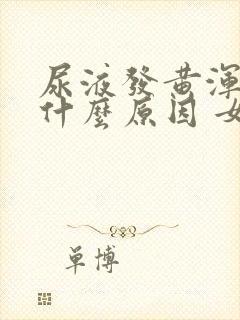 尿液發黃渾
什麼原因 女
單博